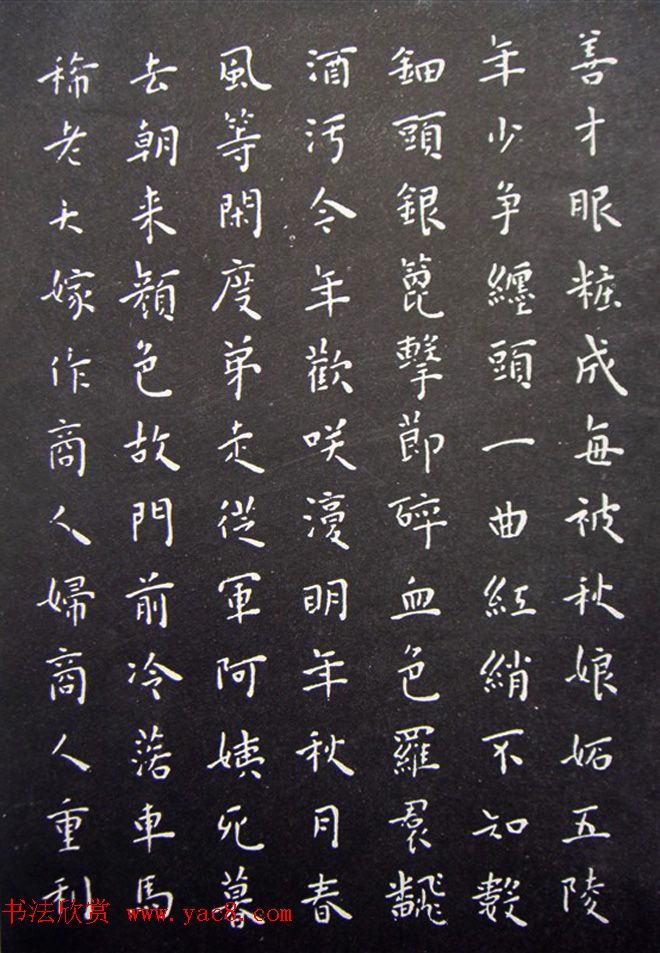 善才眼粧成每被秋娘妬五陵
年少争纏頭一曲紅綃不知數
鈿頭銀篦擊節碎血色羅裠飜
酒污今年歡咲復明年秋月春
風等閑度弟走從軍阿姨死暮
去朝来顔色故門前冷落車馬
稀老大嫁作商人婦商人重利
书法欣赏 www.yac8.com